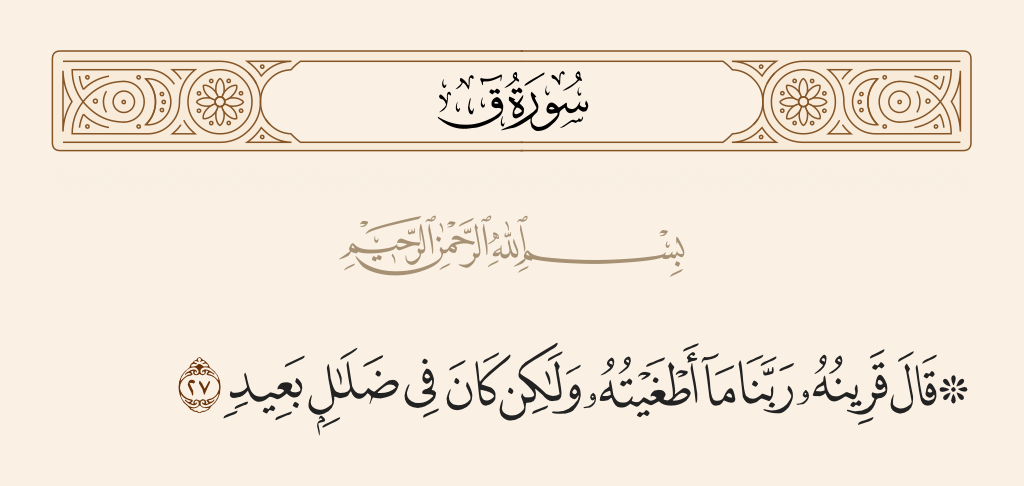 سُورَةُ قٓ
بِسْمِ ٱللَّهِ ٱلرَّحْمَٰنِ ٱلرَّحِيمِ
۞ قَالَ قَرِينُهُۥ رَبَّنَا مَآ أَطْغَيْتُهُۥ وَلَٰكِن كَانَ فِى ضَلَٰلٍۭ بَعِيدٍ ٢٧